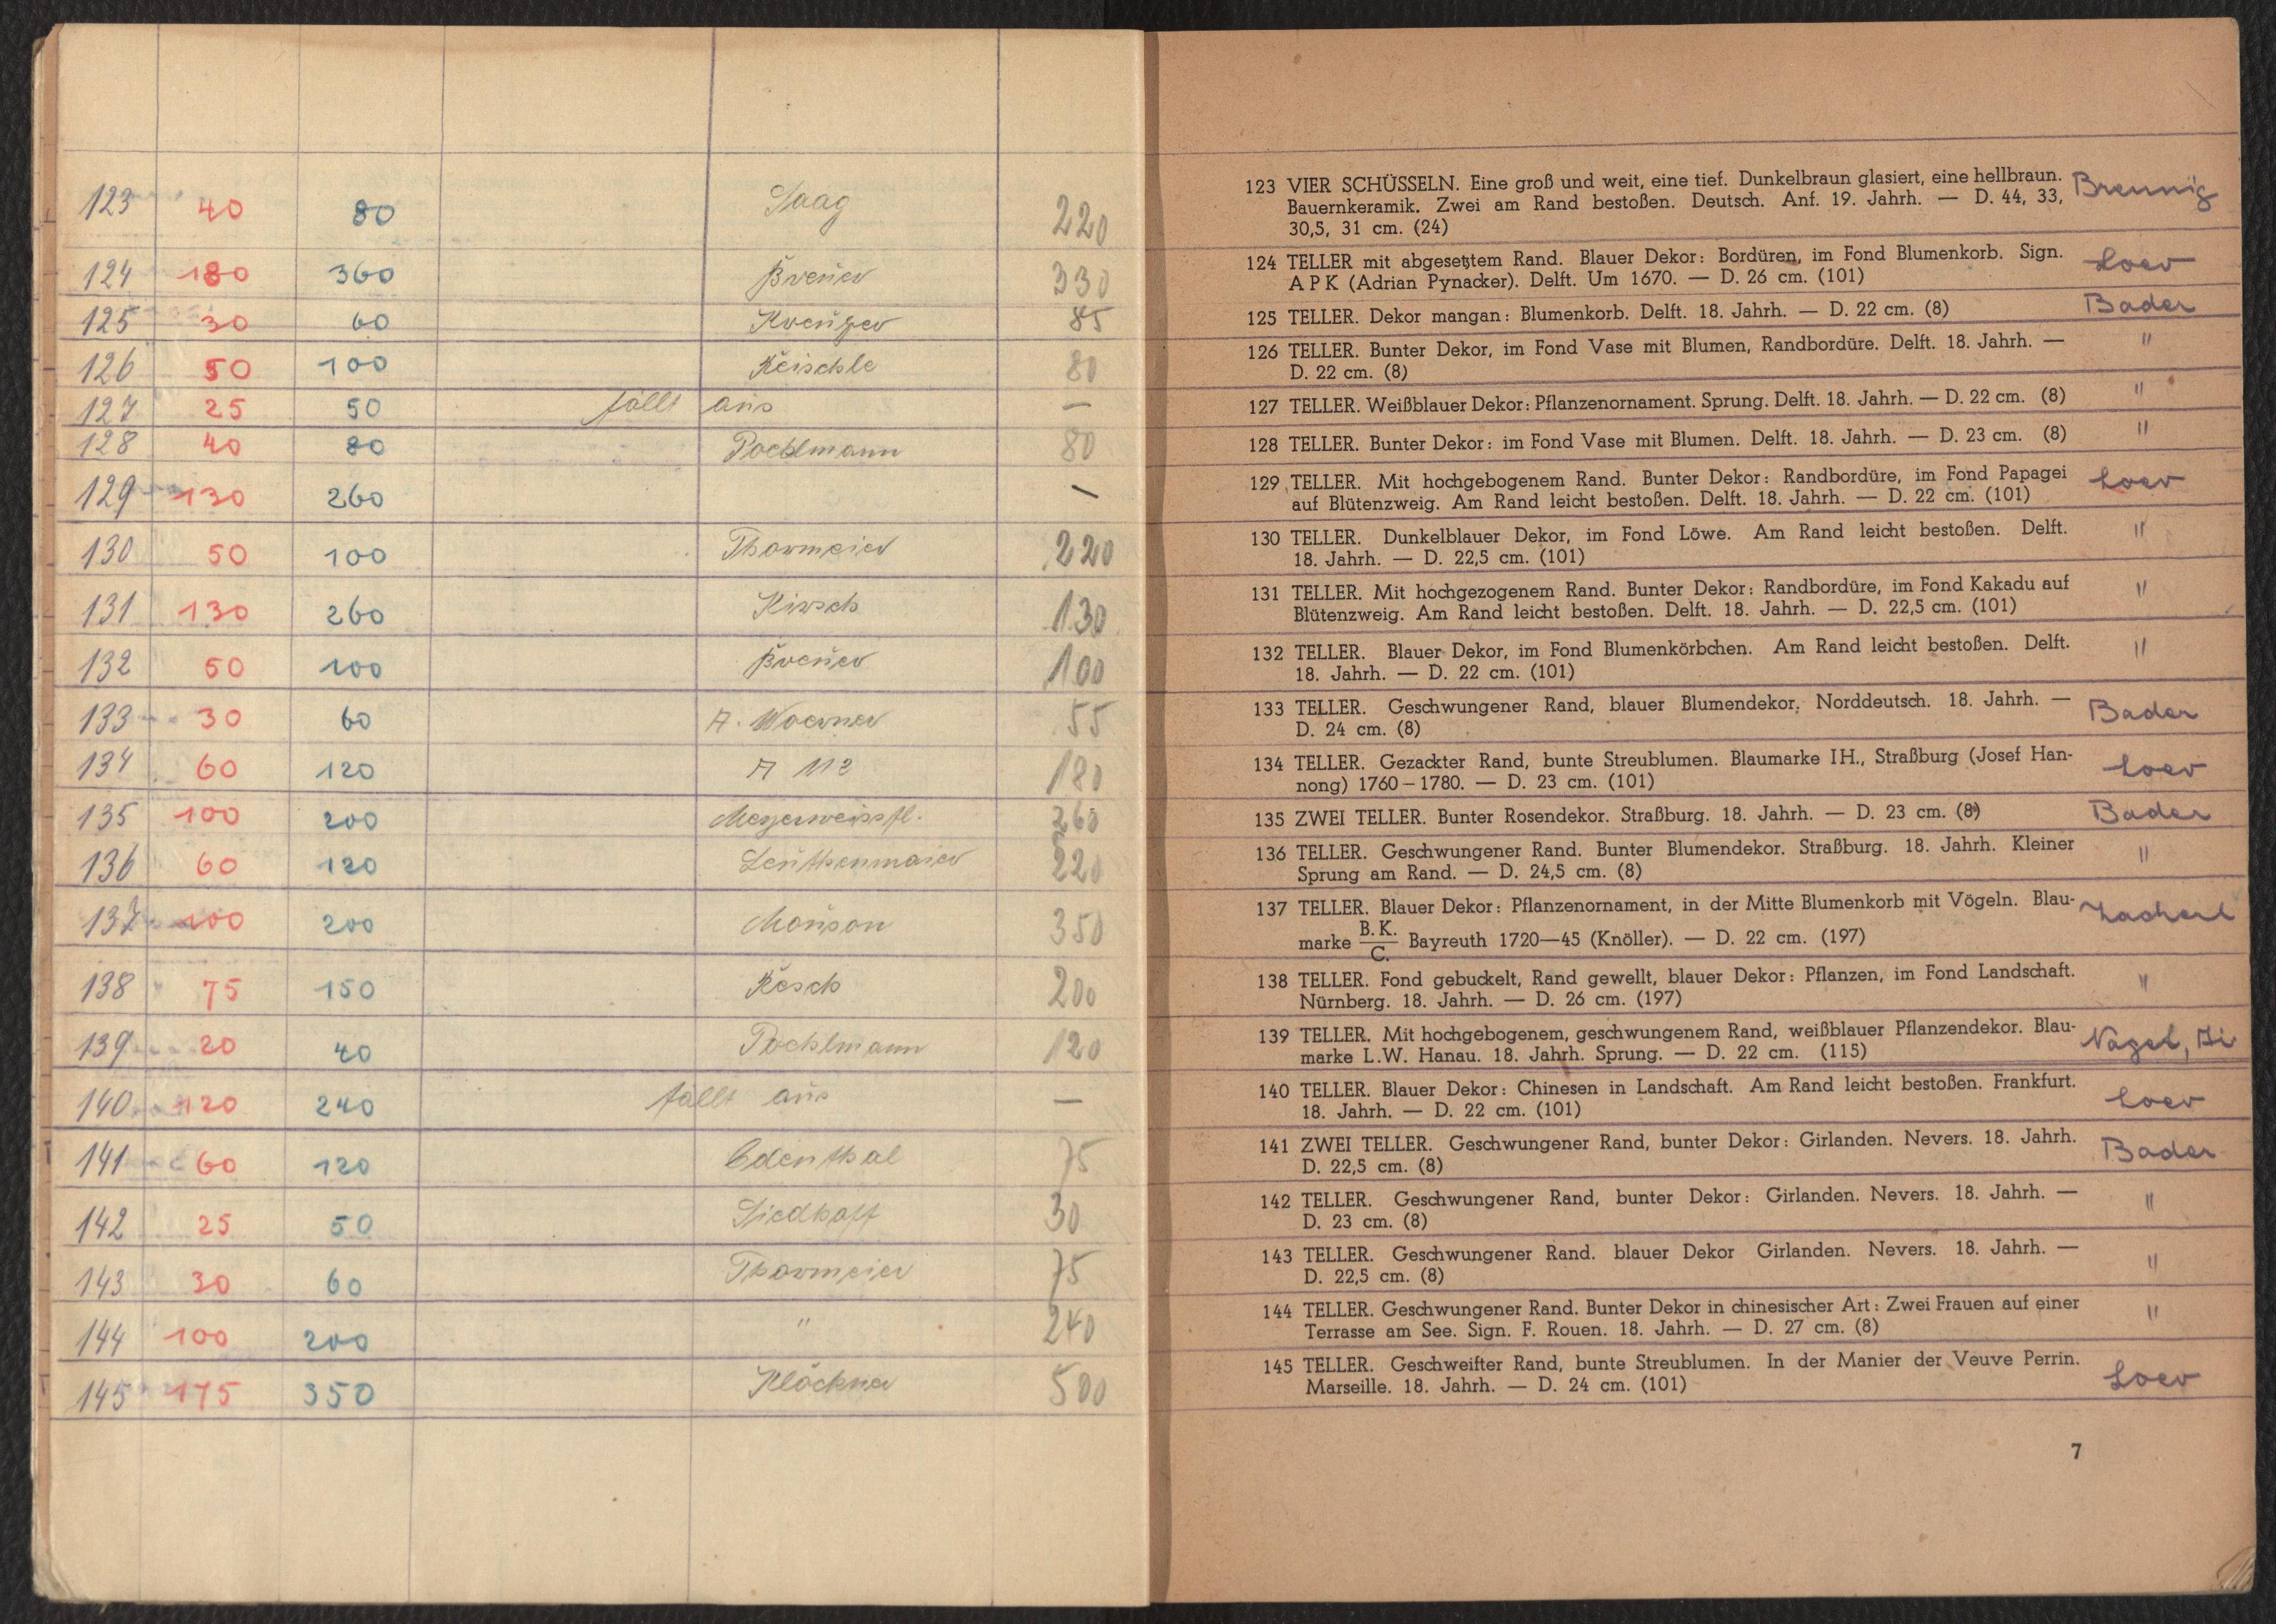 123 40 80 Saag 220
124 180 360 Breuer 330
125 30 60 Kreuzer 85
126 50 100 Reischle 80
127 25 50 fällt aus —
128 40 80 Poehlmann 80
129 130 260 —
130 50 100 Thormeier 220
131 130 260 Hirsch 130
132 50 100 Breuer 100
133 30 60 A. Woerner 55
134 60 120 A 112 180
135 100 200 260
136 60 120 Leuthenmaier 220
137 100 200 350
138 75 150 Rösch 200
139 20 40 Poehlmann 120
140 120 240 fällt aus —
141 60 120 Edenthal 75
142 25 50 Siedhoff 30
143 30 60 Thormeier 75
144 100 200 " 240
145 175 350 Klöckner 500
123 VIER SCHÜSSELN. Eine groß und weit, eine tief. Dunkelbraun glasiert, eine hellbraun. Brennig
Bauernkeramik. Zwei am Rand bestoßen. Deutsch. Anf. 19. Jahrh. — D. 44, 33,
30,5, 31 cm. (24)
124 TELLER mit abgesetztem Rand. Blauer Dekor: Bordüren, im Fond Blumenkorb. Sign. Loev
A P K (Adrian Pynacker). Delft. Um 1670. — D. 26 cm. (101)
125 TELLER. Dekor mangan: Blumenkorb. Delft. 18. Jahrh. — D. 22 cm. (8) Bader
126 TELLER. Bunter Dekor, im Fond Vase mit Blumen, Randbordüre. Delft. 18. Jahrh. — "
D. 22 cm. (8)
127 TELLER. Weißblauer Dekor: Pflanzenornament. Sprung. Delft. 18. Jahrh. — D. 22 cm. (8) "
128 TELLER. Bunter Dekor: im Fond Vase mit Blumen. Delft. 18. Jahrh. — D. 23 cm. (8) "
129 TELLER. Mit hochgebogenem Rand. Bunter Dekor: Randbordüre, im Fond Papagei Loev
auf Blütenzweig. Am Rand leicht bestoßen. Delft. 18. Jahrh. — D. 22 cm. (101)
130 TELLER. Dunkelblauer Dekor, im Fond Löwe. Am Rand leicht bestoßen. Delft. "
18. Jahrh. — D. 22,5 cm. (101)
131 TELLER. Mit hochgezogenem Rand. Bunter Dekor: Randbordüre, im Fond Kakadu auf "
Blütenzweig. Am Rand leicht bestoßen. Delft. 18. Jahrh. — D. 22,5 cm. (101)
132 TELLER. Blauer Dekor, im Fond Blumenkörbchen. Am Rand leicht bestoßen. Delft. "
18. Jahrh. — D. 22 cm. (101)
133 TELLER. Geschwungener Rand, blauer Blumendekor. Norddeutsch. 18. Jahrh. — Bader
D. 24 cm. (8)
134 TELLER. Gezackter Rand, bunte Streublumen. Blaumarke IH., Straßburg (Josef Han- Loev
nong) 1760 – 1780. — D. 23 cm. (101)
135 ZWEI TELLER. Bunter Rosendekor. Straßburg. 18. Jahrh. — D. 23 cm. (8) Bader
136 TELLER. Geschwungener Rand. Bunter Blumendekor. Straßburg. 18. Jahrh. Kleiner "
Sprung am Rand. — D. 24,5 cm. (8)
137 TELLER. Blauer Dekor: Pflanzenornament, in der Mitte Blumenkorb mit Vögeln. Blau- Zacherl
marke B. K. / C. Bayreuth 1720—45 (Knöller). — D. 22 cm. (197)
138 TELLER. Fond gebuckelt, Rand gewellt, blauer Dekor: Pflanzen, im Fond Landschaft. "
Nürnberg. 18. Jahrh. — D. 26 cm. (197)
139 TELLER. Mit hochgebogenem, geschwungenem Rand, weißblauer Pflanzendekor. Blau- Nagel,
marke L. W. Hanau. 18. Jahrh. Sprung. — D. 22 cm. (115)
140 TELLER. Blauer Dekor: Chinesen in Landschaft. Am Rand leicht bestoßen. Frankfurt. Loev
18. Jahrh. — D. 22 cm. (101)
141 ZWEI TELLER. Geschwungener Rand, bunter Dekor: Girlanden. Nevers. 18. Jahrh. Bader
D. 22,5 cm. (8)
142 TELLER. Geschwungener Rand, bunter Dekor: Girlanden. Nevers. 18. Jahrh. — "
D. 23 cm. (8)
143 TELLER. Geschwungener Rand. blauer Dekor Girlanden. Nevers. 18. Jahrh. — "
D. 22,5 cm. (8)
144 TELLER. Geschwungener Rand. Bunter Dekor in chinesischer Art: Zwei Frauen auf einer "
Terrasse am See. Sign. F. Rouen. 18. Jahrh. — D. 27 cm. (8)
145 TELLER. Geschweifter Rand, bunte Streublumen. In der Manier der Veuve Perrin. Loev
Marseille. 18. Jahrh. — D. 24 cm. (101)
7